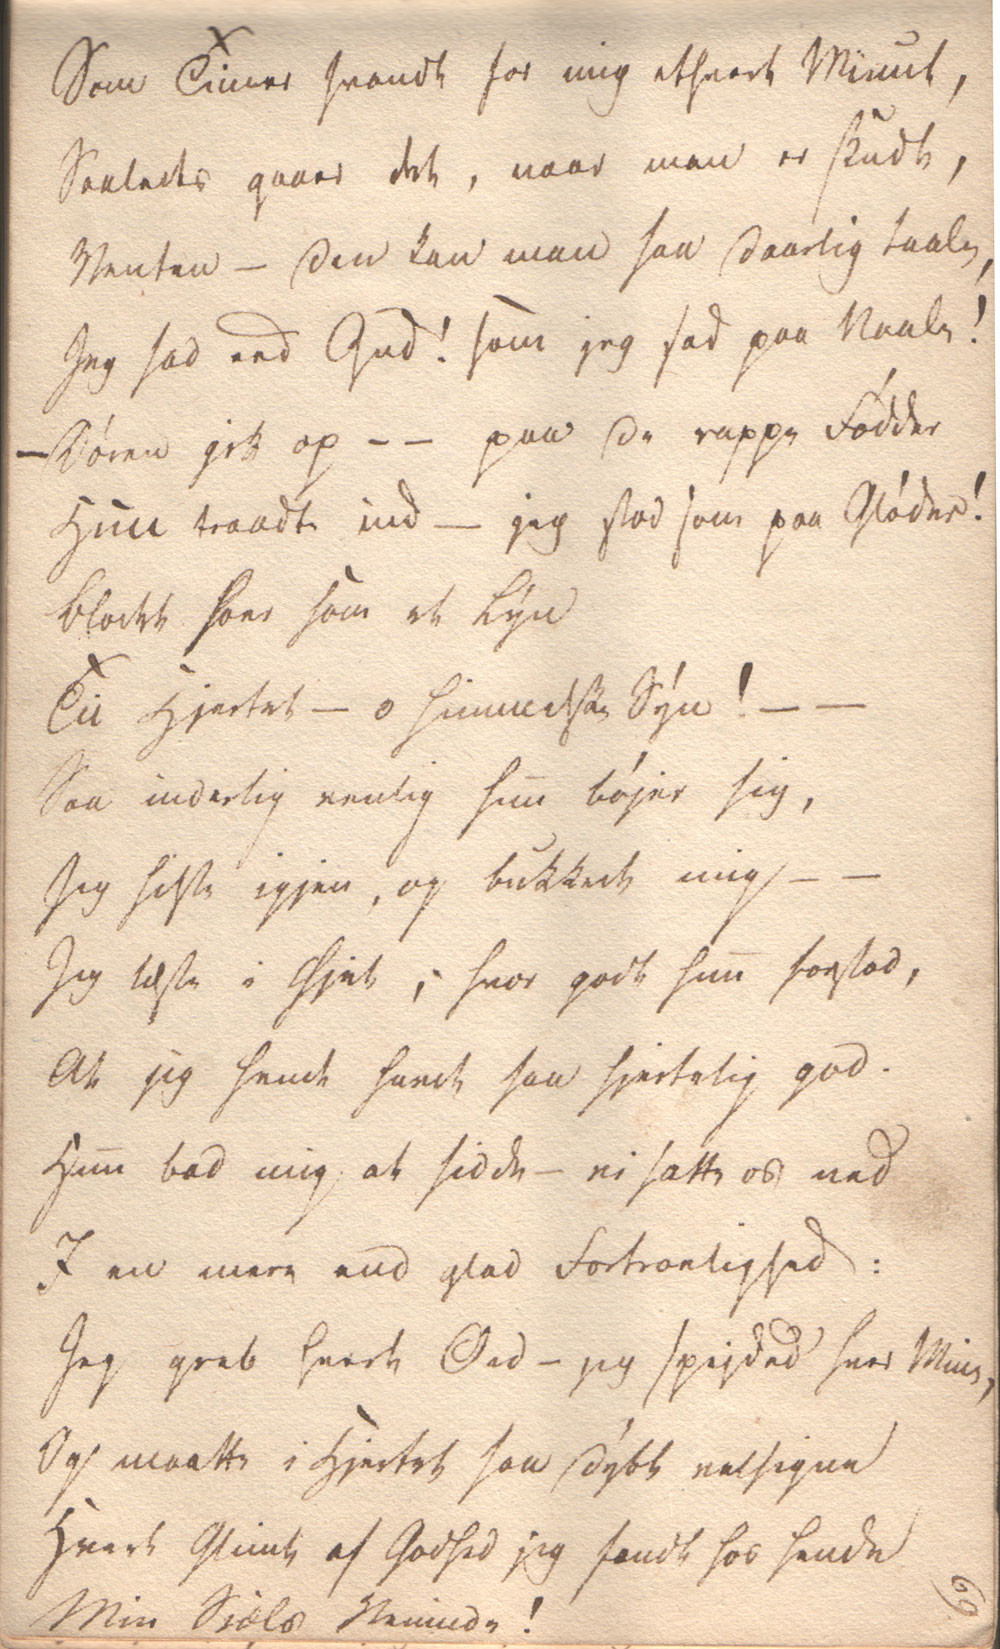 Som Timer svandt for mig ethvert Minut,
Saaledes gaaer det, naar man er skudt,
Venten — den kan man saa daarlig taale,
Jeg sad ved Gud! som jeg sad paa Naale!
— Døren gik op — — paa de rappe Fødder
Hun traadte ind — jeg stod som paa Gløder!
Blodet foer som et Lyn
Til Hjertet — o himmelske Syn! — —
Saa inderlig venlig hun bøjer sig,
Jeg hilste igjen, og bukkede mig — —
Jeg læste i Øjet, hvor godt hun forstod,
At jeg hende havde saa hjertelig god.
Hun bad mig at sidde — vi satte os ned
I en mere end glad Fortroelighed:
Jeg greb hvert Ord — jeg spejded hver Mine,
Og maatte i Hjertet saa dybt velsigne
Hvert Glimt af Godhed jeg fandt hos hende
Min Siæls Veninde!
6